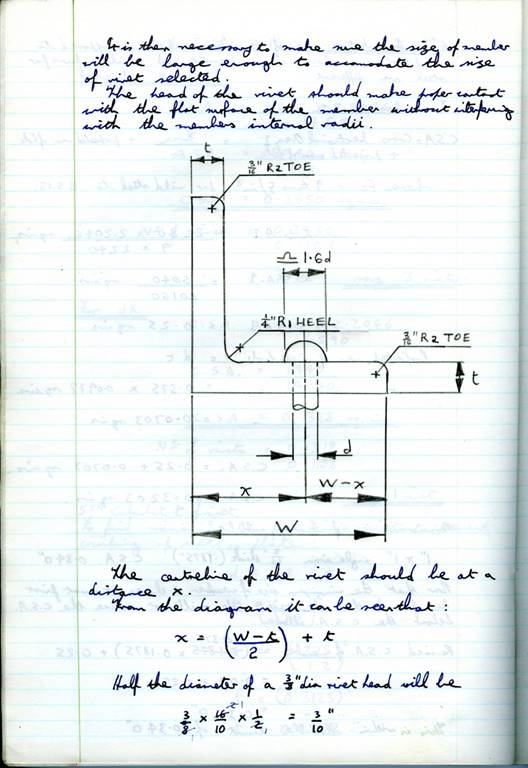 It is then necessary to make sure the size of member
will be large enough to accomodate the size
of rivet selected.
The head of the rivet should make proper contact
with the flat surface of the member without interfering
with the members internal radii.
t
3/16" R2 TOE
1.6d
1/4" R1 HEEL
3/16" R2 TOE
t
d
x
W-x
W
The centreline of the rivet should be at a
distance x.
From the diagram it can be seen that:
x = (W-t/2) + t
Half the diameter of a 3/8" dia rivet head will be
3/8 x 16/10 x 1/2 = 3/10"